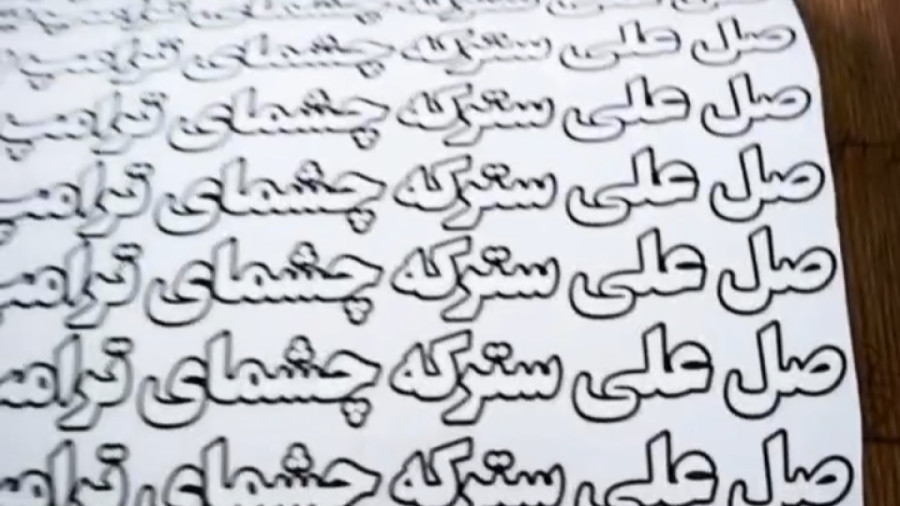 صل علی ستركه چشمای ترامپ
صل علی ستركه چشمای ترامپ
صل علی ستركه چشمای ترامپ
صل علی ستركه چشمای ترامپ
صل علی ستركه چشمای ترامپ
صل علی ستركه چشمای